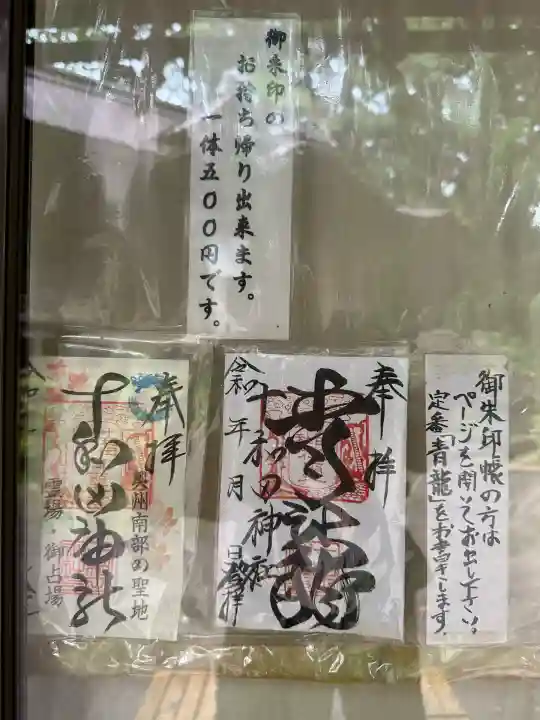 御朱印の
お持ち帰り出来ます。
一体五００円です。
御朱印帳の方は
ページを開いてお出し下さい。
定番「青龍」をお書きします。
奉拝
青龍
十和田神社
令和 年 月 日 登拝
奉拝
奥州南部の聖地
十和田神社
霊場・御占場
令和